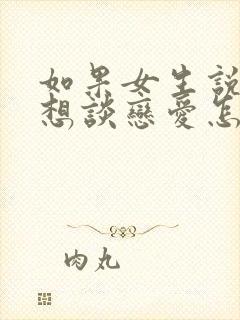 如果女生說
想談戀愛怎
肉丸